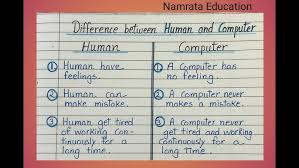 Namrata Education
Difference between Human and Computer
Human
Computer
1 Human have feelings.
1 A Computer has no feeling.
2 Human can make mistake.
2 A computer never makes a mistake.
3 Human get tired of working continuously for a long time.
3 A computer never get tired and working continuously for a long time.